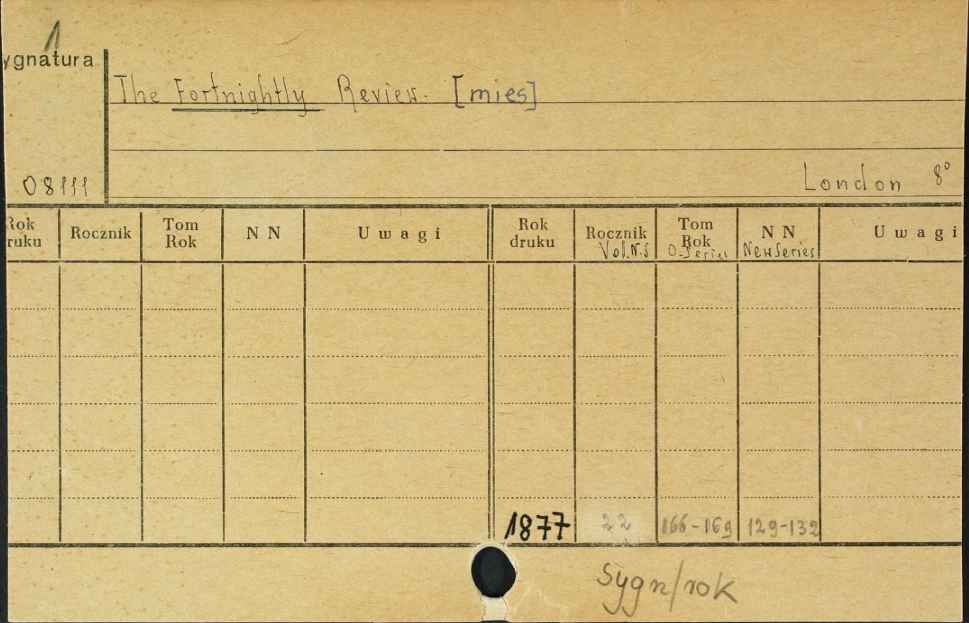 1
ygnatura
The Fortnightly Review. [mies]
08111
London 8°
Rok
ruku
Rocznik
Tom
Rok
N N
Uwagi
Rok
druku
Rocznik
Vol. N.S
Tom
Rok
O. Series
N N
New Series
Uwagi
1877 22 166-169 129-132
Sygn/rok